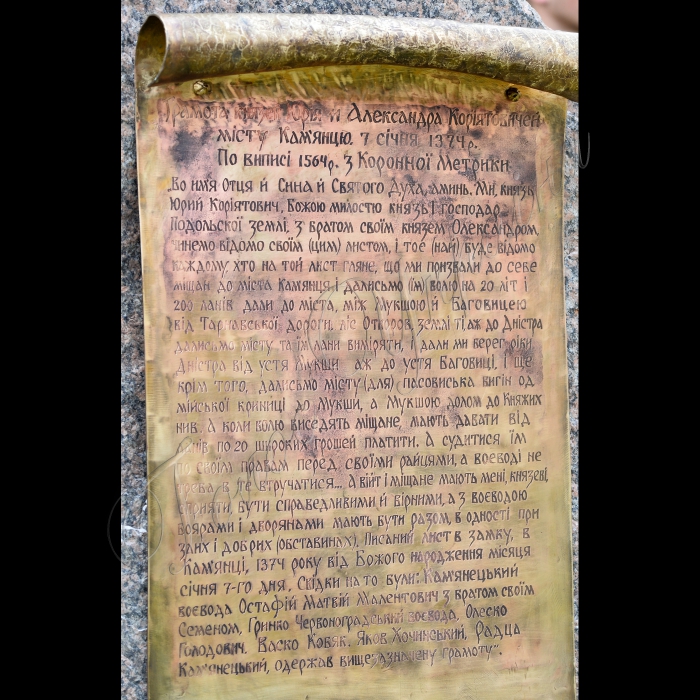 Грамота князів Юрія й Александра Коріятовичей
місту Кам'янцю. 7 січня 1374 р.
По виписі 1564р. з Коронної Метрики.
„Во имя Отця й Сина й Святого Духа, аминь. Ми, князь
Юрий Коріятович, Божою милостю князь і господар
Подольскої землі, з братом своїм князем Олександром,
чинемо відомо своїм (цим) листом, і тоє (най) буде відомо
каждому, хто на той лист гляне, що ми призвали до себе
міщан до міста Кам'янця і далисьмо (їм) волю на 20 літ і
200 ланів дали до міста, між Мукшою й Баговицею
від Тарнавської дороги, ліс Отморов, землі ті аж до Дністра
далисьмо місту та їм лани виміряти, і дали ми верег ріки
Дністра від устя Мукши аж до устя Баговиці, і ще
крім того, далисьмо місту (для) пасовиська вигін од
мійської криниці до Мукши, а Мукшою долом до Княжих
нив. А коли волю виседять міщане, мають давати від
ланів по 20 широких грошей платити. А судитися їм
по своїм правам перед своїми райцями, а воєводі не
треба в те втручатися... А війт і міщане мають мені, князеві,
сприяти, бути справедливими й вірними, а з воєводою
боярами і дворянами мають бути разом, в одності при
злих і добрих (обставинах). Писаний лист в замку, в
Кам'янці, 1374 року від Божого народження місяця
січня 7-го дня. Свідки на то були: Кам'янецький
воєвода Остафій Матвій Малентович з братом своїм
Семеном, Гринко Червоноградський воєвода, Олеско
Голодович. Васко Кобяк. Яков Хочинський, Радца
Кам'янецький, одержав вищезазначену грамоту".